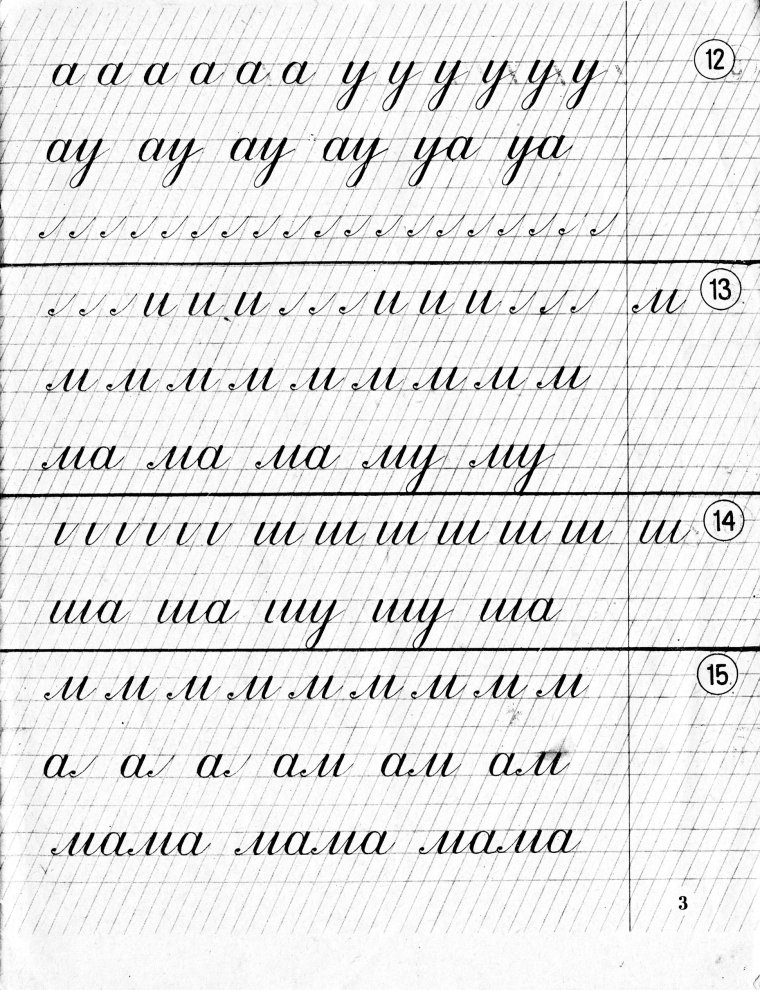 а а а а а а у у у у у у 12
ау ау ау ау уа уа
и и и и и и м 13
м м м м м м м м м
ма ма ма му му
ш ш ш ш ш ш ш 14
ша ша шу шу ша
м м м м м м м м м 15
а а а ам ам ам
мама мама мама
3